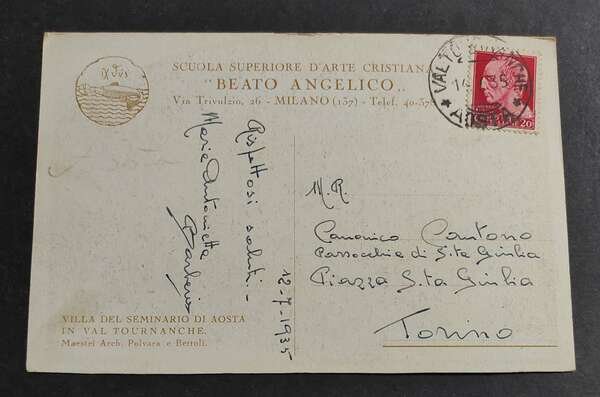 ΙΧΘΥΣ
SCUOLA SUPERIORE D'ARTE CRISTIANA
"BEATO ANGELICO"
Via Trivulzio, 26 - MILANO (137) - Telef. 40-378
VALTOURNANCHE
AOSTA
20
Rispettosi saluti -
Maria Antonietta
12-7-1935
M. R.
Canonico Cantono
Parrocchia di S.ta Giulia
Piazza S.ta Giulia
Torino
VILLA DEL SEMINARIO DI AOSTA
IN VAL TOURNANCHE.
Maestri Arch. Polvara e Bettoli.